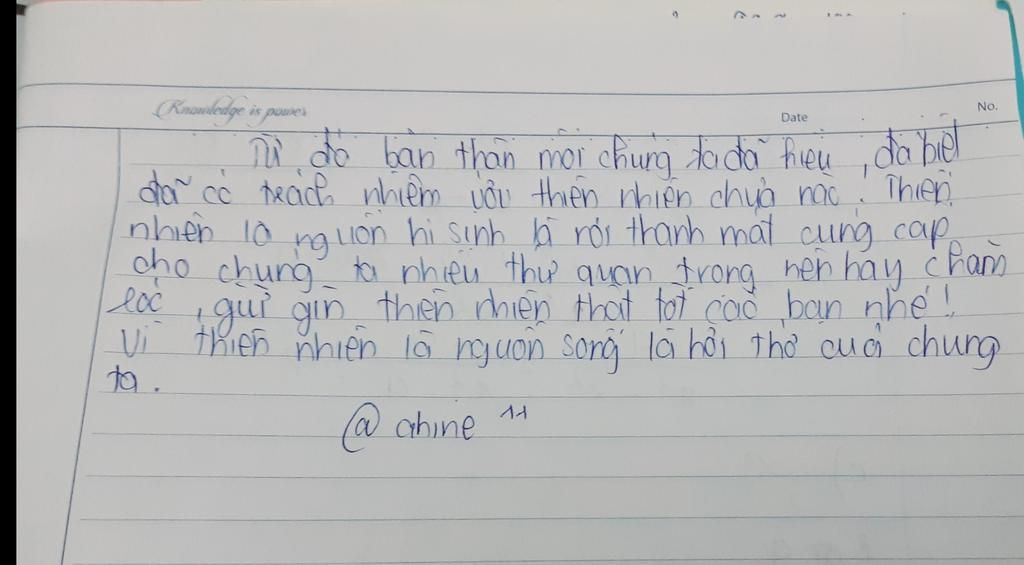 Knowledge is power
Date
No.
Từ đó bản thân mỗi chúng ta đã hiểu, đã biết
đã có trách nhiệm với thiên nhiên chưa nào. Thiên
nhiên là nguồn hi sinh là rời thanh mát cung cấp
cho chúng ta nhiều thứ quan trọng nên hãy chăm
sóc, giữ gìn thiên nhiên thật tốt các bạn nhé!
Vì thiên nhiên là nguồn sống là hơi thở của chúng
ta.
@ ahine ^^